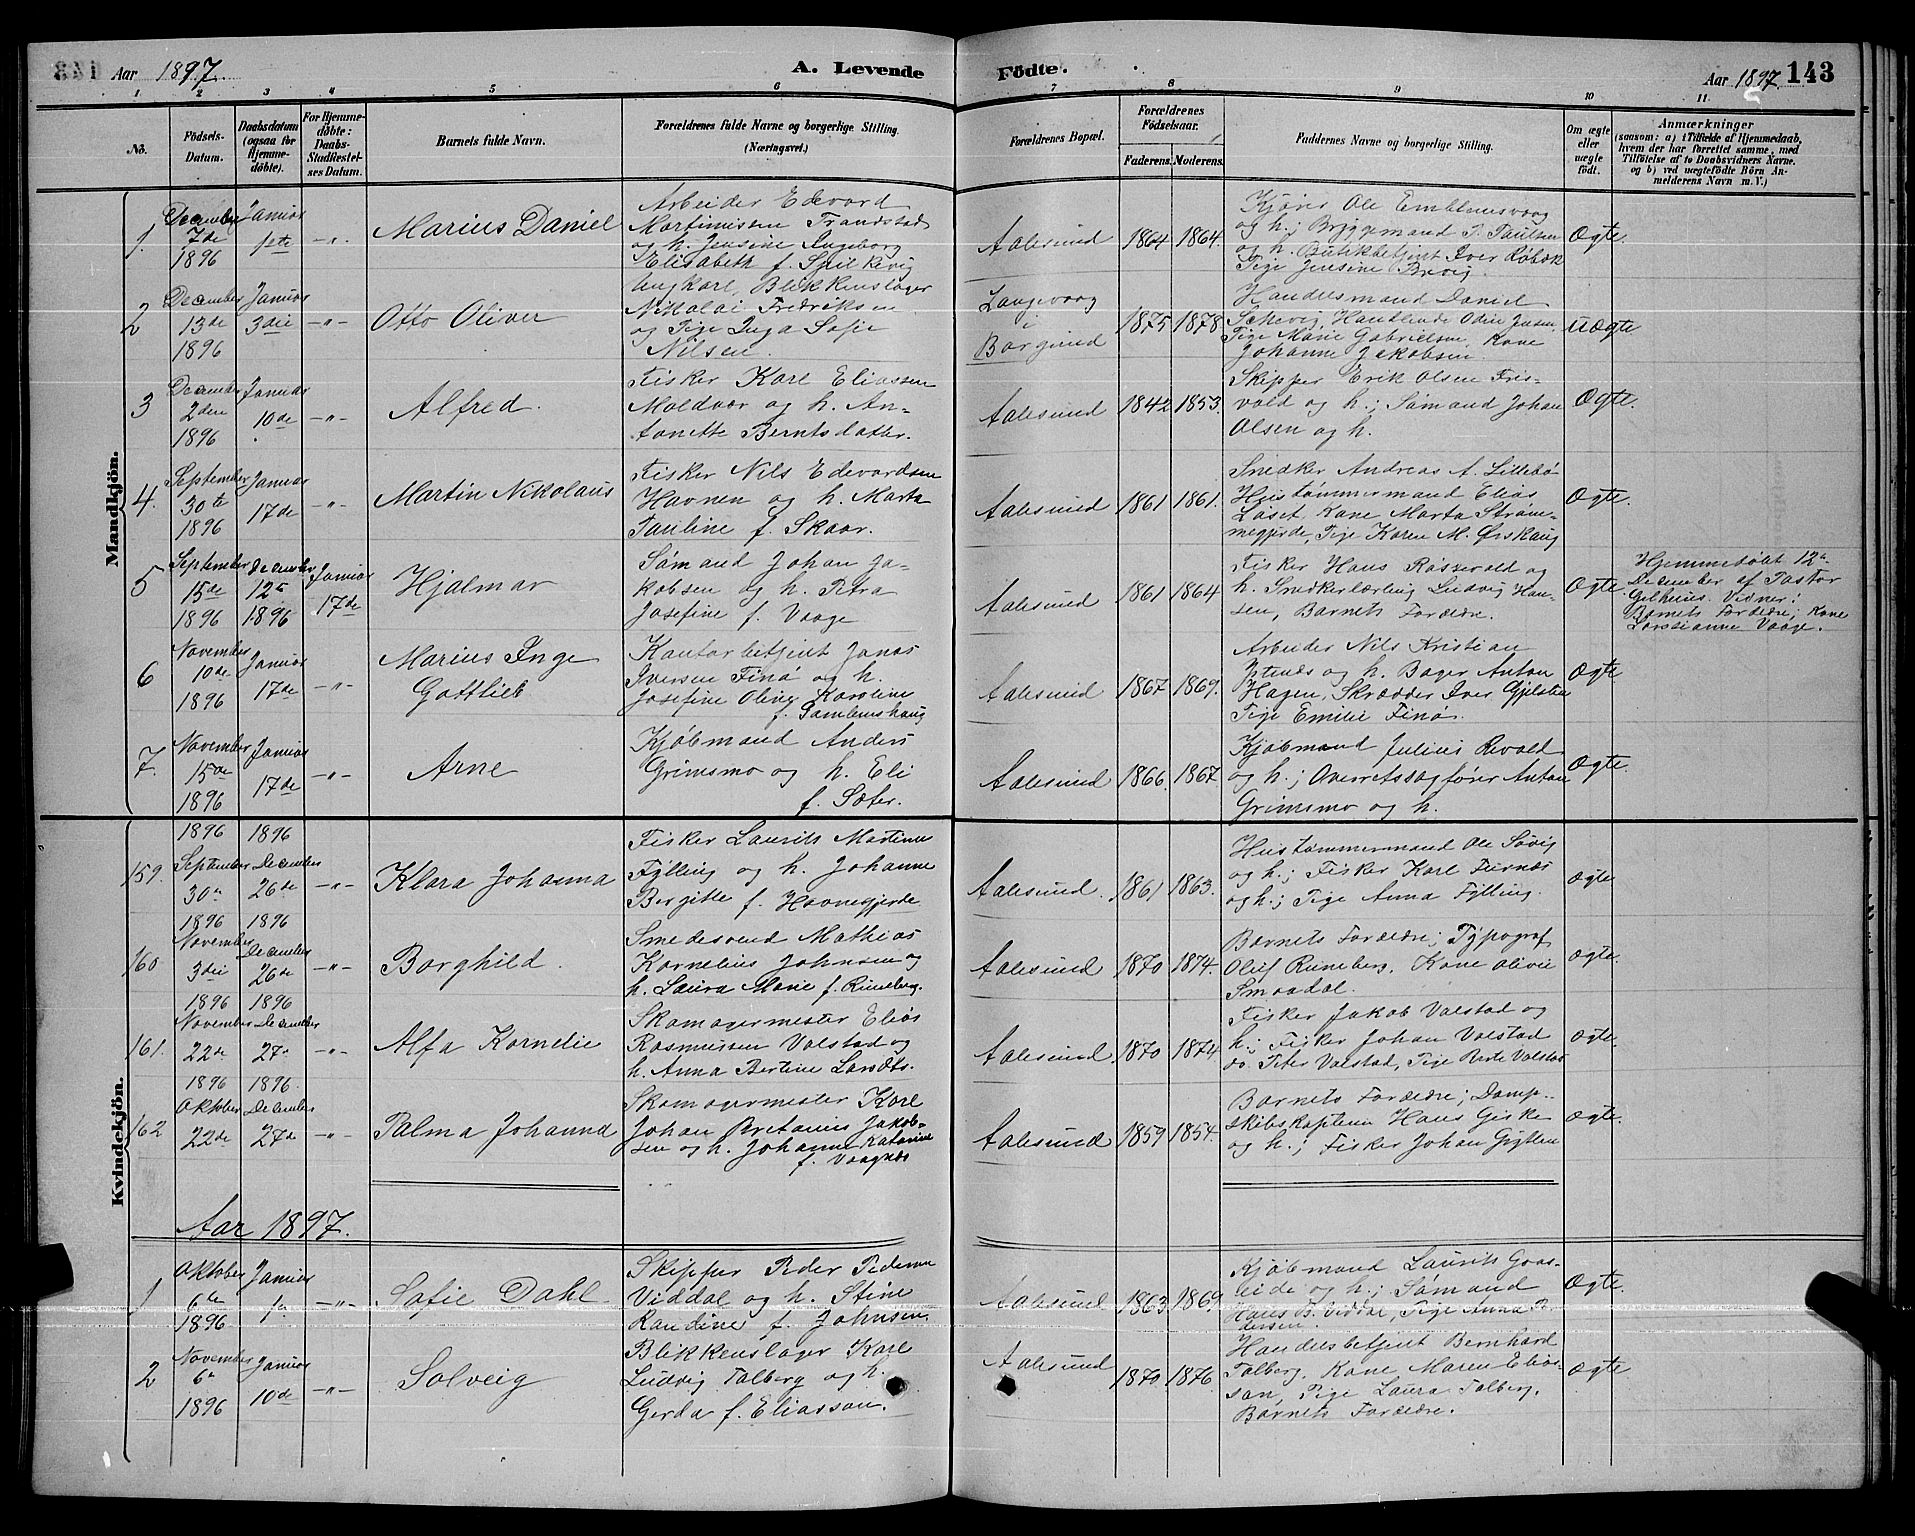 Aar 1897.
A. Levende
Födte.
Aar 1897.
143
1 2 3 4 5 6 7 8 9 10 11
No.
Födsels-
Datum.
Daabsdatum
(ogsaa for
Hjemme-
döbte).
For Hjemme-
döbte:
Daabs-
Stadfæstel-
ses Datum.
Barnets fulde Navn.
Forældrenes fulde Navne og borgerlige Stilling.
(Næringsvei.)
Forældrenes Bopæl.
Forældrenes
Födselsaar.
Faderens. Moderens.
Faddernes Navne og borgerlige Stilling.
Om ægte
eller
uægte
født.
Anmærkninger
(saasom: a) i Tilfælde af Hjemmedaab,
hvem der har forrettet samme, med
Tilföielse af to Daabsvidners Navne.
og b) ved uægtefödte Börn An-
melderens Navn m. V.)
Mandkjön.
1.
December
7de
1896
Januar
1ste
-"-
Marius Daniel
Arbeider Edevard
Martinussen Frandstad
og h. Jensine Ingeborg
Elisabeth f. Spilkevig
Aalesund
1864 1864.
Kjører Ole Emblemsvaag
og h.; Bryggemand P. Paulsen
og h. Butikbetjent Iver Røbæk
Pige Jensine Brevig.
Ægte.
2
December
13de
1896
Januar
3die
-"-
Otto Oliver
Ungkarl, Blikkenslager
Nikolai Fredriksen
og Pige Inga Sofie
Nilsen.
Langevaag
i
Borgund
1875 1878
Handelsmand Daniel
Marie Gabrielsen, Kone
Johanne Jakobsen
uægte
3
December
2den
1896
Januar
10de
-"-
Alfred.
Fisker Karl Eliassen
Moldvær og h. An-
tonette Berntsdatter.
Aalesund
1842 1853.
Skipper Erik Olsen Fris-
vold og h.; Sømand Johan
Olsen og h.
Ægte.
4.
September
30te
1896
Januar
17de
-"-
Martin Nikolaus
Fisker Nils Edevardsen
Havnen og h. Marta
Pauline f. Skaar.
Aalesund
1861 1861.
Snedker Andreas A. Lillebø
Hustømmermand Elias
Løset Kone Marta Strøm-
megjerde, Pige Karen M. Ørskaug
Ægte.
5
September
15de
1896
December
12te
1896
Januar
17de
Hjalmar
Sømand Johan Ja-
kobsen og h. Petra
Josefine f. Vaage
Aalesund
1861 1864
Fisker Hans Røssevold og
h. Snedkerlærling Ludvig Han-
sen, Barnets Forældre.
Ægte.
Hjemmedøbt 12te
December af Pastor
Gilhuus. Vidner:
Barnets Forældre; Kone
Larsianne Vaage.
6
November
10de
1896
Januar
17de
-"-
Marius Inge
Gottlieb
Kontorbetjent Jonas
Iversen Finø og h.
Josefine Oline Karoline
f. Gamlemshaug
Aalesund
1867 1869.
Arbeider Nils Kristian
og h. Bager Anton
Hagen, Skrædder Iver Gjelsten
Pige Emilie Finø.
Ægte
7.
November
15de
1896
Januar
17de
-"-
Arne
Kjøbmand Anders
Grimsmo og h. Eli
f. Sæter.
Aalesund
1866. 1867.
Kjøbmand Julius Revold
og h.; Overretssagfører Anton
Grimsmo og h.
Ægte.
Kvindekjön.
159.
1896
September
30te
1896
December
26de
-"-
Klara Johanna
Fisker Laurits Martinus
Fylling og h. Johanne
Bergitte f. Havnegjerde
Aalesund.
1861 1863.
Hustømmermand Ole Søvig
og h.; Fisker Karl Furnæs
og h.; Pige Anna Fylling.
ægte
160
1896
November
3die
1896
December
26de
-"-
Borghild.
Smedesvend Mathias
Kornelius Johnsen og
h. Laura Marie f. Runeberg.
Aalesund
1870 1874.
Barnets Forældre; Typograf
Oluf Runeberg, Kone Olivie
Smaadal.
ægte.
161.
1896
November
22de
1896
December
27de
-"-
Alfa Kornelie
Skomagermester Elias
Rasmussen Valstad og
h. Anna Bertine Larsdtr.
Aalesund.
1870 1874.
Fisker Jakob Valstad og
h.; Fisker Johan Valstad
do. Peter Valstad, Pige Berte Valstad
ægte.
162
1896
Oktober
22de
1896.
December
27de
-"-
Palma Johanna
Skomagermester Karl
Johan Britanius Jakob-
sen og h. Johanne Katarine
f. Vaagnæs
Aalesund
1859 1854.
Barnets Forældre; Damp-
skibskaptein Hans Giske
og h.; Fisker Johan Gjysten
ægte.
Aar 1897.
1
Oktober
6te
1896
Januar
1ste
-"-
Sofie Dahl
Skipper Peder Pedersen
Viddal og h. Stine
Randine f. Johnsen.
Aalesund
1863 1869
Kjøbmand Laurits Goas-
lide og h.; Sømand
Hans B. Viddal, Pige Anna P-
dersen
Ægte
2
November
6te
1896
Januar
10de
-"-
Solveig
Blikkenslager Karl
Ludvig Talberg og h.
Gerda f. Eliasson.
Aalesund
1870 1876
Handelsbetjent Bernhard
Talberg, Kone Maren Elias-
son, Pige Laura Talberg,
Barnets Forældre.
ægte